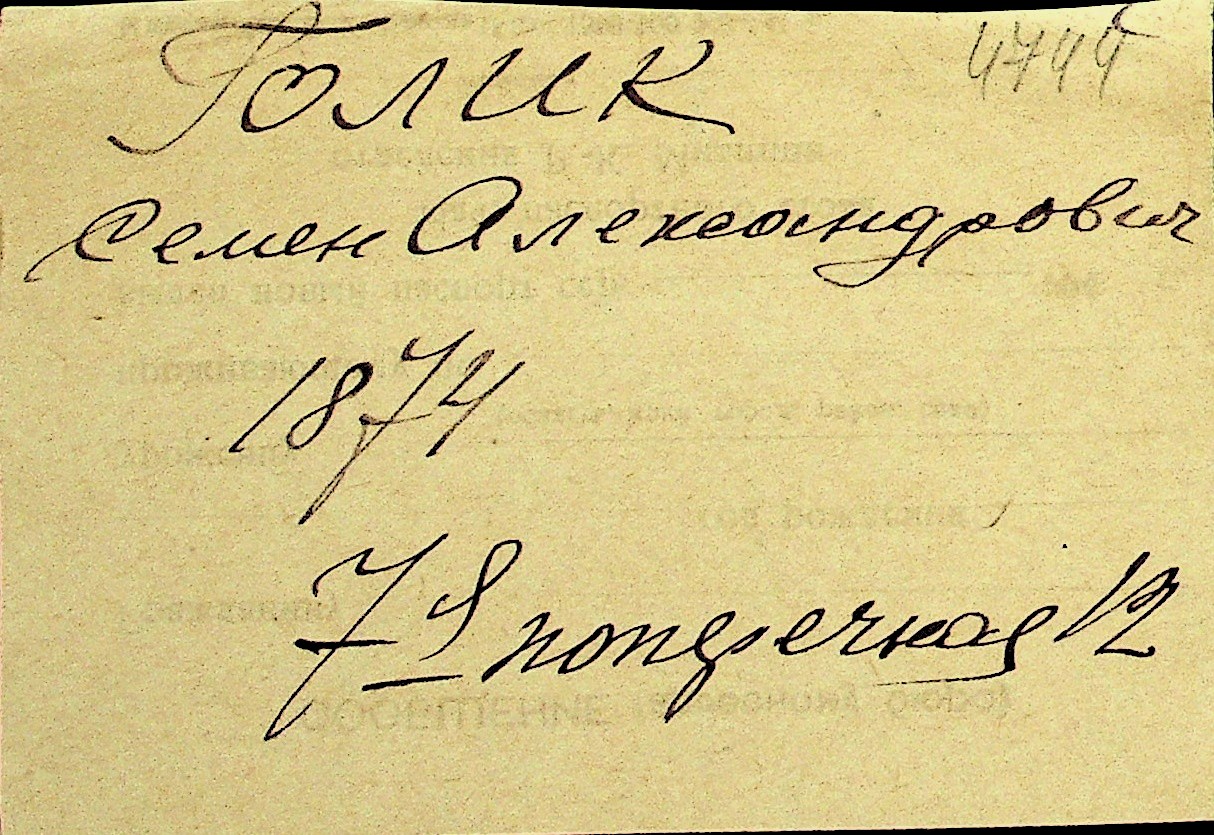 Голик 4744
Семен Александрович
1874
7я поперечная 12